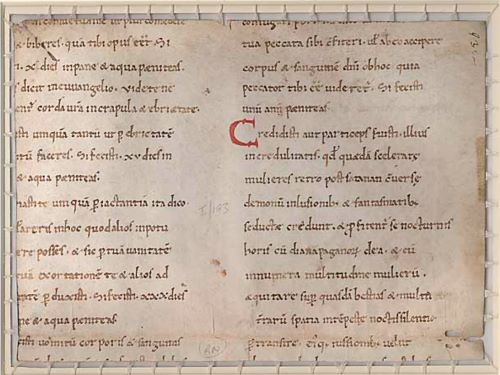 ut plus comedere
& biberes, qua tibi opus eet. Si
.x. dies inpane & aqua peniteas.
dicit ineuuangelio. videte ne
cordaura incrapula & ebrietate.
isti umqua tantu ut p ebrietate
tu faceres. Si fecisti .xv. dies in
& aqua peniteas.
tasti te umqua p iactantia ita dico.
inhoc quod alios inpotu
ere posses. & sic p tua uanitate
tua exortatione te & alios ad
pduxisti. Si fecisti .xxx. dies
ne & aqua peniteas
isti uomitu corporis & sanguinis
tua peccata sibi cfiteri. ut ab eo acciperet
corpus & sanguine dni obhoc quia
peccator tibi ee videret. Si fecisti
unu annu peniteas.
Credidisti aut particeps fuisti. illius
incredulitatis. qd queda scelerate
mulieres retro post satanan cuerse
demonu inlusionib. & fantasmatib.
seducte credunt. & pfitent se nocturnis
horis cu diana paganoru dea. & cu
innumera multitudine mulieru.
& equitare sup quasda bestias & multa
terraru spatia intempeste noctis silentio
ptransire. eiq. iussionib. uelut
I/193